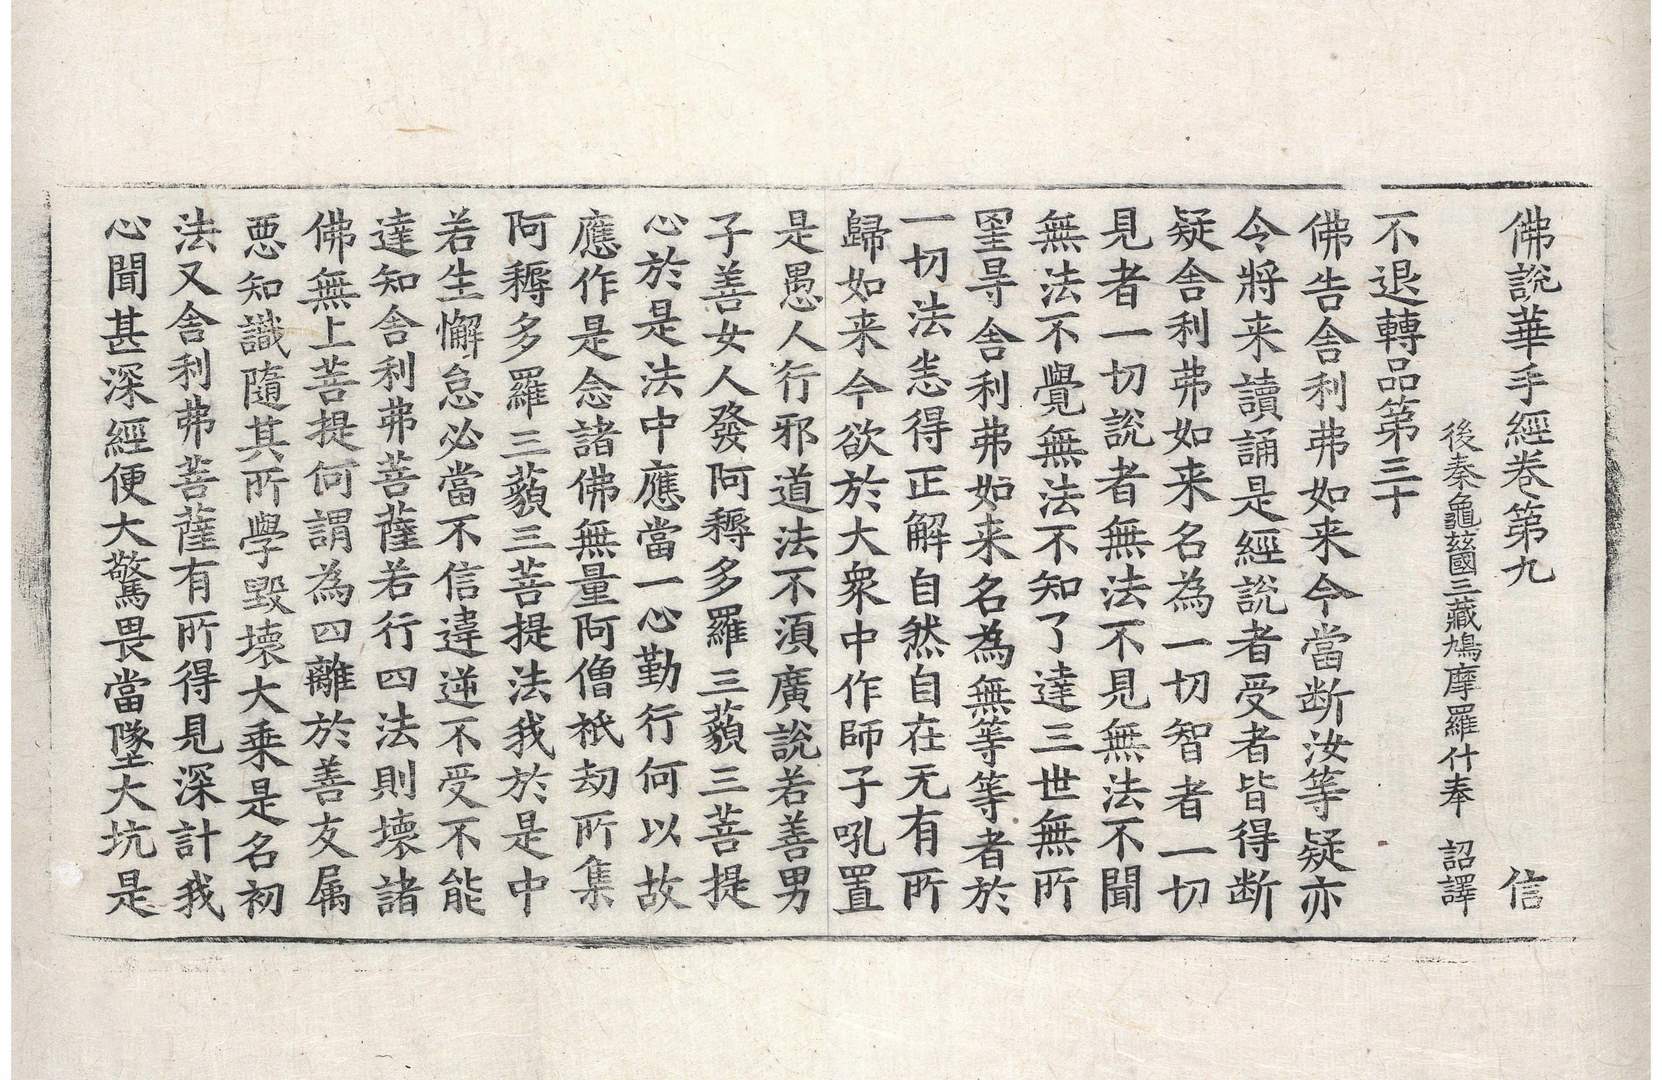 佛說華手經卷第九 信
後秦龜茲國三藏鳩摩羅什奉 詔譯
不退轉品第三十
佛告舍利弗如来今當断汝等疑亦
令將来讀誦是經說者受者皆得断
疑舍利弗如来名為一切智者一切
見者一切說者無法不見無法不聞
無法不覺無法不知了達三世無所
罣㝵舍利弗如来名為無等等者於
一切法悉得正解自然自在无有所
歸如来今欲於大衆中作師子吼置
是愚人行邪道法不湏廣說若善男
子善女人發阿耨多羅三藐三菩提
心於是法中應當一心勤行何以故
應作是念諸佛無量阿僧祇劫所集
阿耨多羅三藐三菩提法我於是中
若生懈怠必當不信違逆不受不能
達知舍利弗菩薩若行四法則壞諸
佛無上菩提何謂為四離於善友属
惡知識隨其所學毀壞大乗是名初
法又舍利弗菩薩有所得見深計我
心聞甚深經便大驚畏當墜大坑是